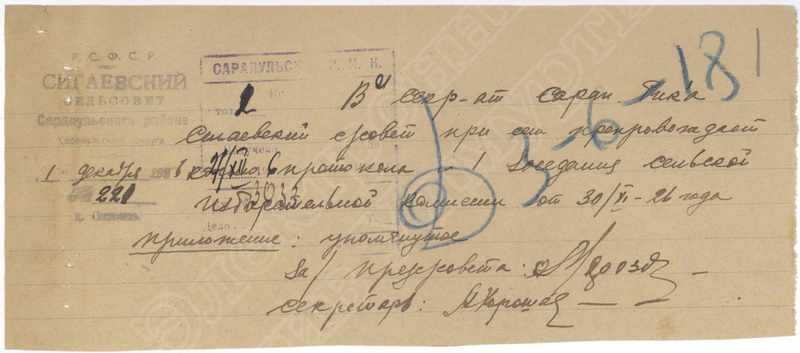 Р. С. Ф. С. Р.
СИГАЕВСКИЙ
СЕЛЬСОВЕТ
Сарапульского района
1 декабря 1926
№ 221
с. Сигаево
САРАПУЛЬСК Р. И. К.
2
3033
В секр-ат Сарап Рика
Сигаевский с/совет при сем препровождает
копию протокола – 1 заседания сельской
избирательной комиссии от 30/XI-26 года
Приложение: упомянутое
за/ Предсовета:
секретарь:
3-6-18
1